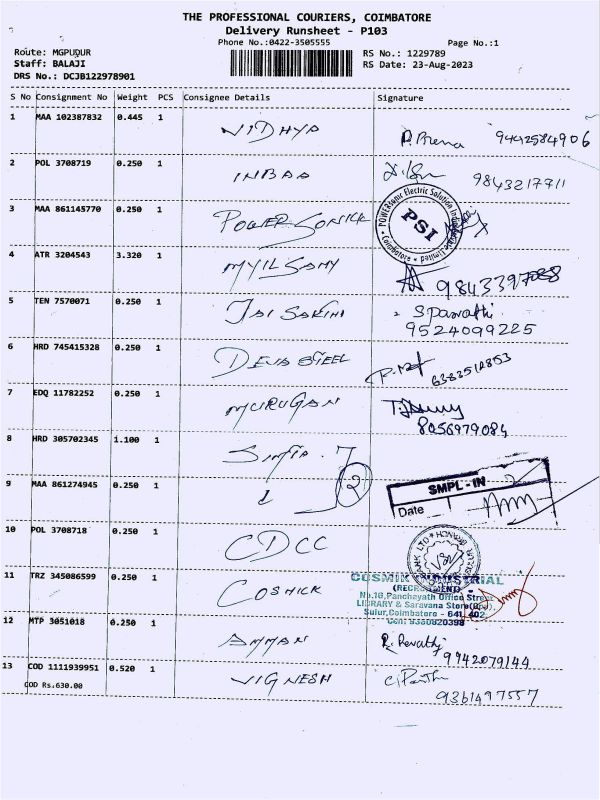 THE PROFESSIONAL COURIERS, COIMBATORE
Delivery Runsheet - P103
Phone No.:0422-3505555 Page No.:1
Route: MGPUDUR RS No.: 1229789
Staff: BALAJI RS Date: 23-Aug-2023
DRS No.: DCJB122978901
S No Consignment No Weight PCS Consignee Details Signature
1 MAA 102387832 0.445 1 VIDHYA 9442584906
2 POL 3708719 0.250 1 INBAA 9843217711
3 MAA 861145770 0.250 1 POWER SONICK PSI
4 ATR 3204543 3.320 1 MYILSAMY
5 TEN 7570071 0.250 1 JAI SAKTHI
9524099225
6 HRD 745415328 0.250 1 DEVA STEEL
7 EDQ 11782252 0.250 1 MURUGAN
8056979084
8 HRD 305702345 1.100 1
9 MAA 861274945 0.250 1 2 SMPL-IN
Date
10 POL 3708718 0.250 1 CDCC
11 TRZ 345086599 0.250 1 COSMICK COSMIK INDUSTRIAL
No.18,Panchayath Office Street
LIBRARY & Saravana Store
Sulur,Coimbatore - 641 402
12 MTP 3051018 0.250 1 AMMAN R. Revathi
9942079144
13 COD 1111939951 0.520 1 VIGNESH
COD Rs.630.00 9361497557